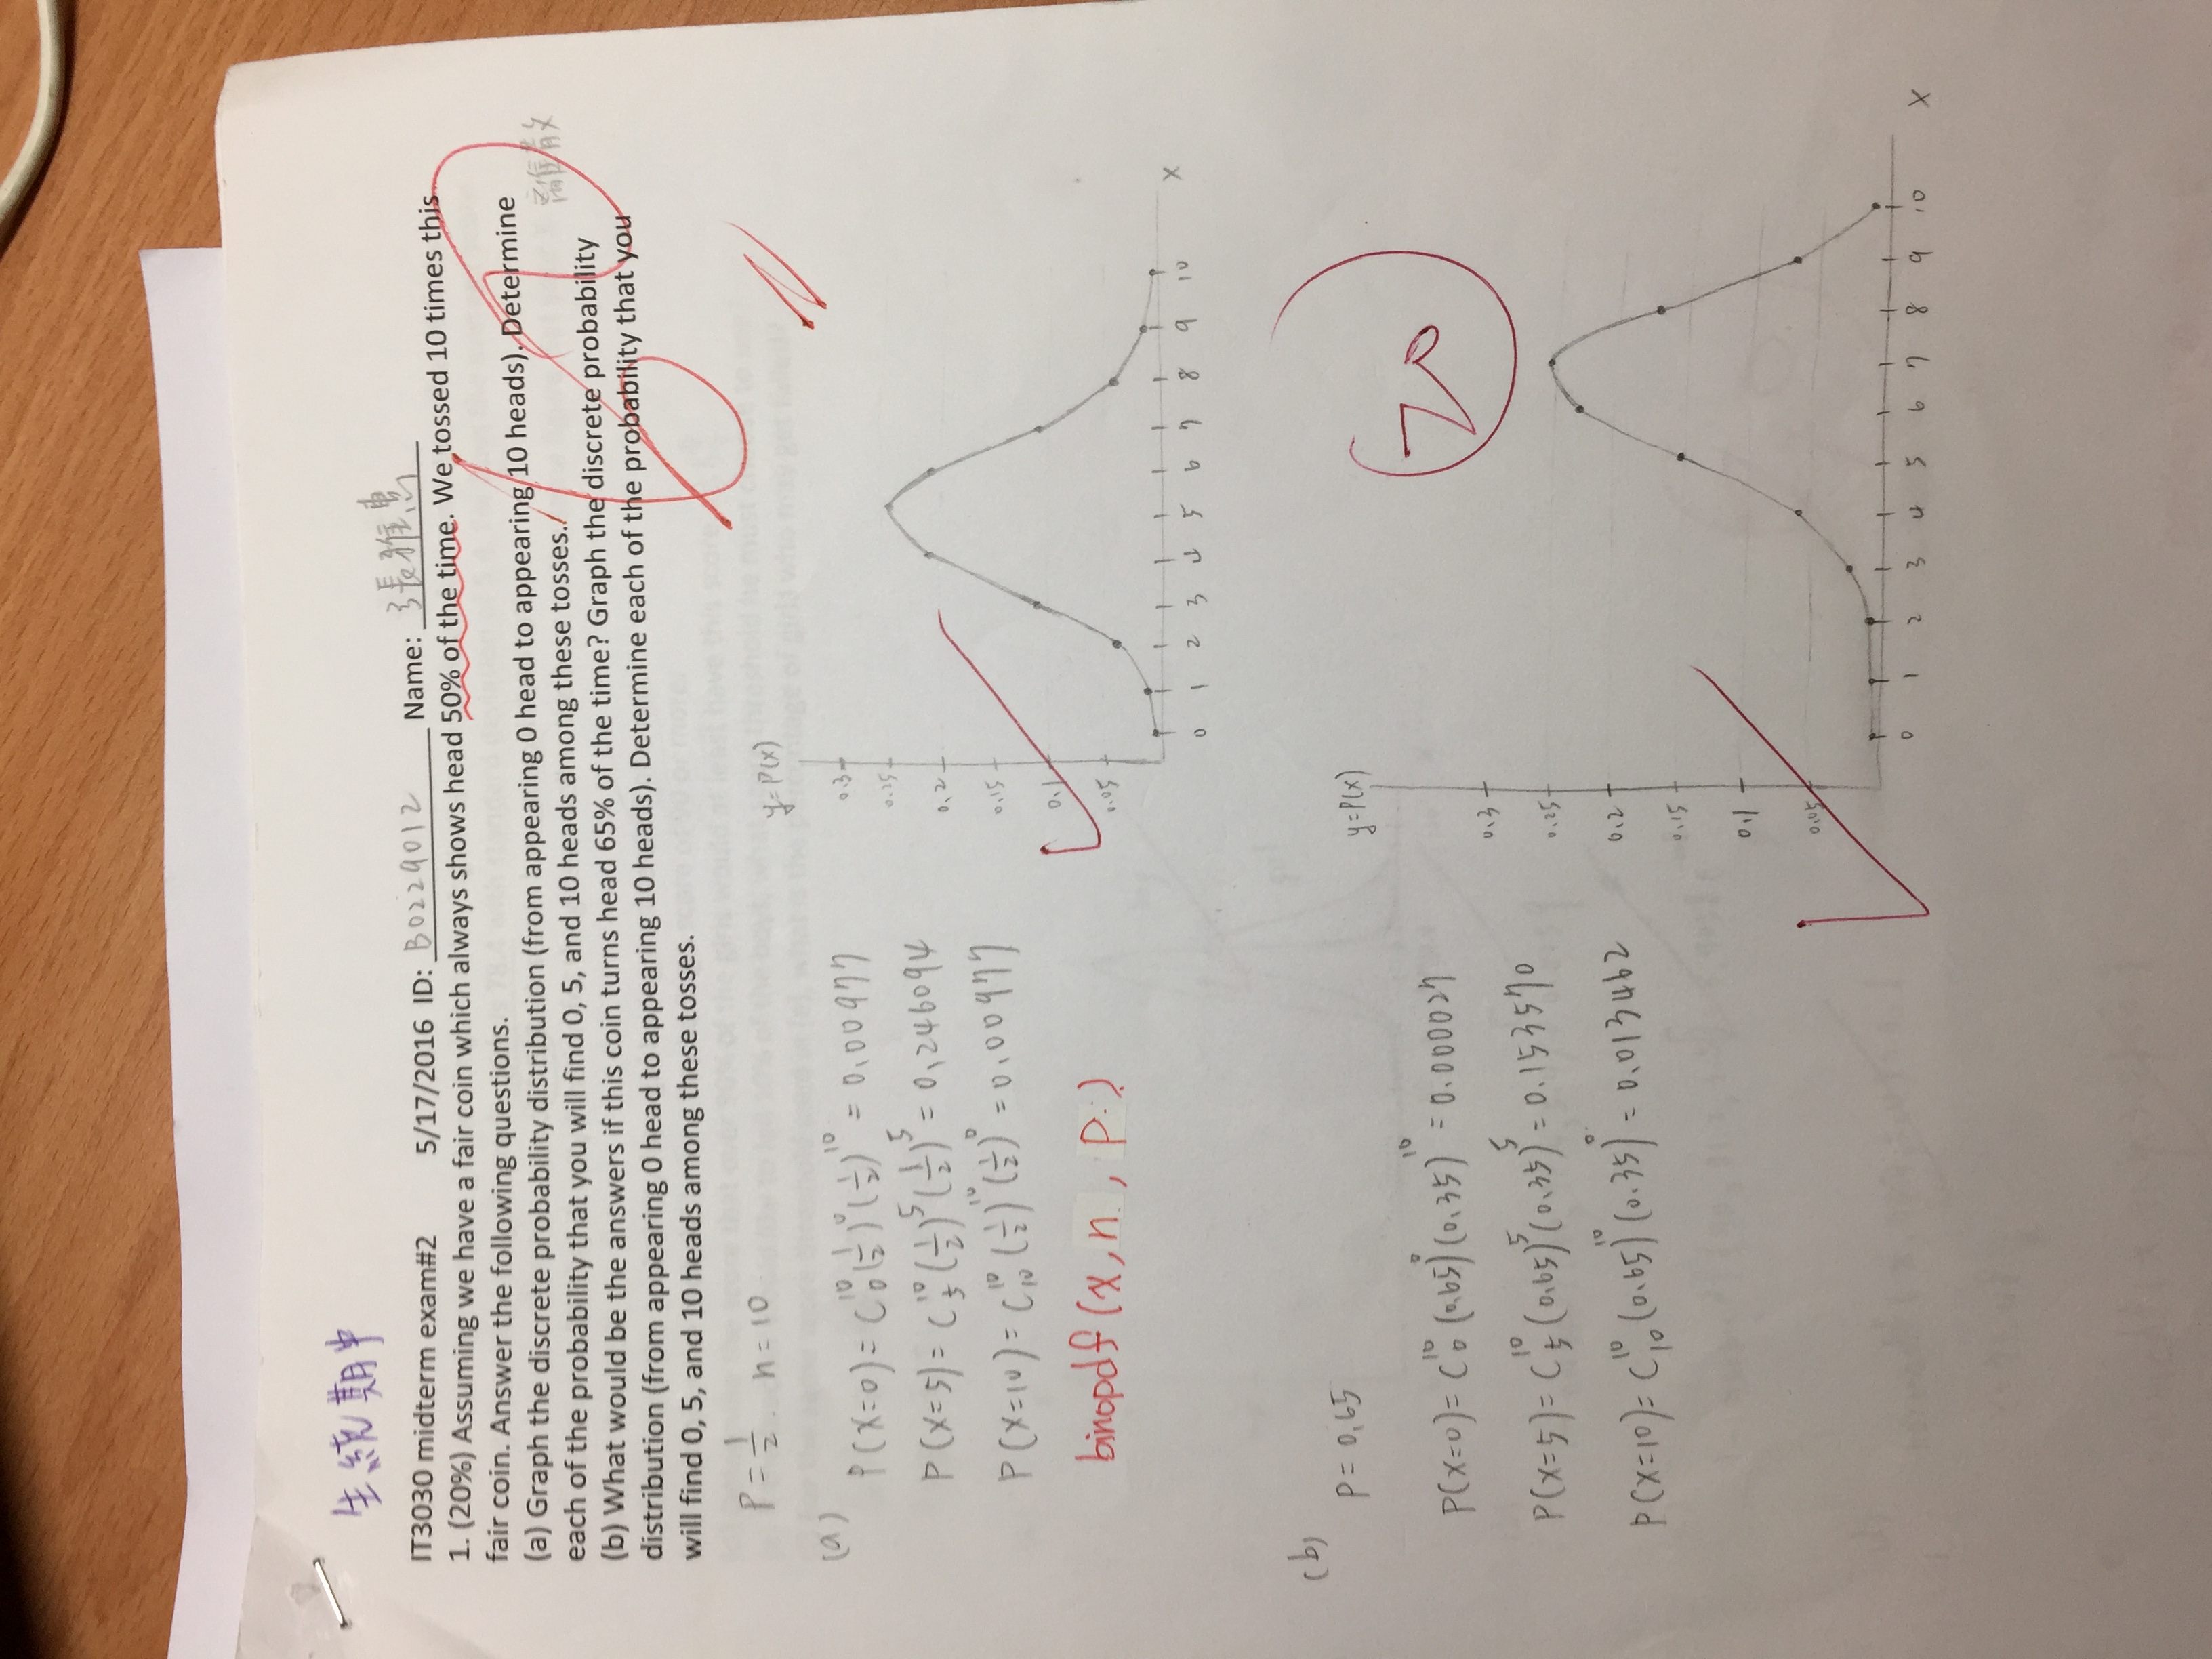 生統期中
IT3030 midterm exam#2 5/17/2016 ID: B0229012 Name: 張雅惠
1. (20%) Assuming we have a fair coin which always shows head 50% of the time. We tossed 10 times this
fair coin. Answer the following questions.
(a) Graph the discrete probability distribution (from appearing 0 head to appearing 10 heads). Determine
離散
each of the probability that you will find 0, 5, and 10 heads among these tosses.
(b) What would be the answers if this coin turns head 65% of the time? Graph the discrete probability
distribution (from appearing 0 head to appearing 10 heads). Determine each of the probability that you
will find 0, 5, and 10 heads among these tosses.
P = 1/2 n = 10
(a)
P(X=0) = C^10_0 (1/2)^0 (1/2)^10 = 0.00977
P(X=5) = C^10_5 (1/2)^5 (1/2)^5 = 0.246094
P(X=10) = C^10_10 (1/2)^10 (1/2)^0 = 0.00977
binopdf (x, n, p)
y=P(x)
0.3
0.25
0.2
0.15
0.1
0.05
0 1 2 3 4 5 6 7 8 9 10 X
(b)
P = 0.65
P(X=0) = C^10_0 (0.65)^0 (0.35)^10 = 0.000027
P(X=5) = C^10_5 (0.65)^5 (0.35)^5 = 0.153570
P(X=10) = C^10_10 (0.65)^10 (0.35)^0 = 0.013462
y=P(x)
20
0.3
0.25
0.2
0.15
0.1
0.05
0 1 2 3 4 5 6 7 8 9 10 X